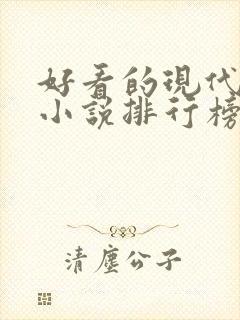 好看的現代
小說排行榜
清塵公子